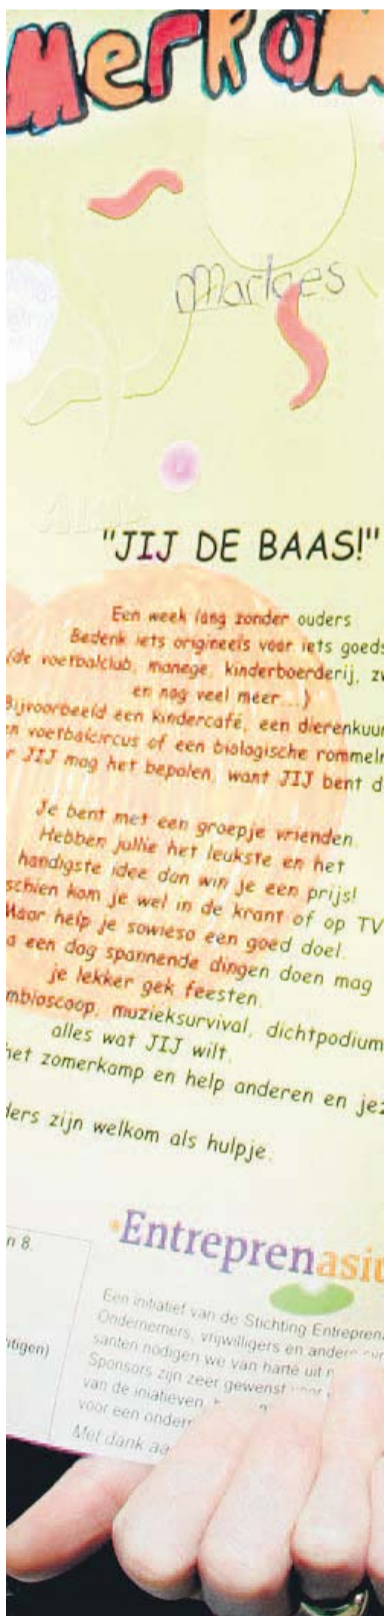 merkam
Marloes
"JIJ DE BAAS!"
Een week lang zonder ouders
Bedenk iets origineels voor iets goeds
(de voetbalclub, manege, kinderboerderij, zw
en nog veel meer...)
Bijvoorbeeld een kindercafé, een dierenkuur
en voetbalcircus of een biologische rommelm
r JIJ mag het bepalen, want JIJ bent d
Je bent met een groepje vrienden.
Hebben jullie het leukste en het
handigste idee dan win je een prijs!
schien kom je wel in de krant of op TV
Maar help je sowieso een goed doel.
a een dag spannende dingen doen mag
je lekker gek feesten.
mbioscoop, muzieksurvival, dichtpodium
alles wat JIJ wilt.
het zomerkamp en help anderen en jez
ders zijn welkom als hulpje.
n 8.
htigen)
Entreprenasiu
Een initiatief van de Stichting Entreprena
Ondernemers, vrijwilligers en andere
santen nodigen we van harte uit
Sponsors zijn zeer gewenst voor
van de iniatieven,
voor een onder
Met dank aa